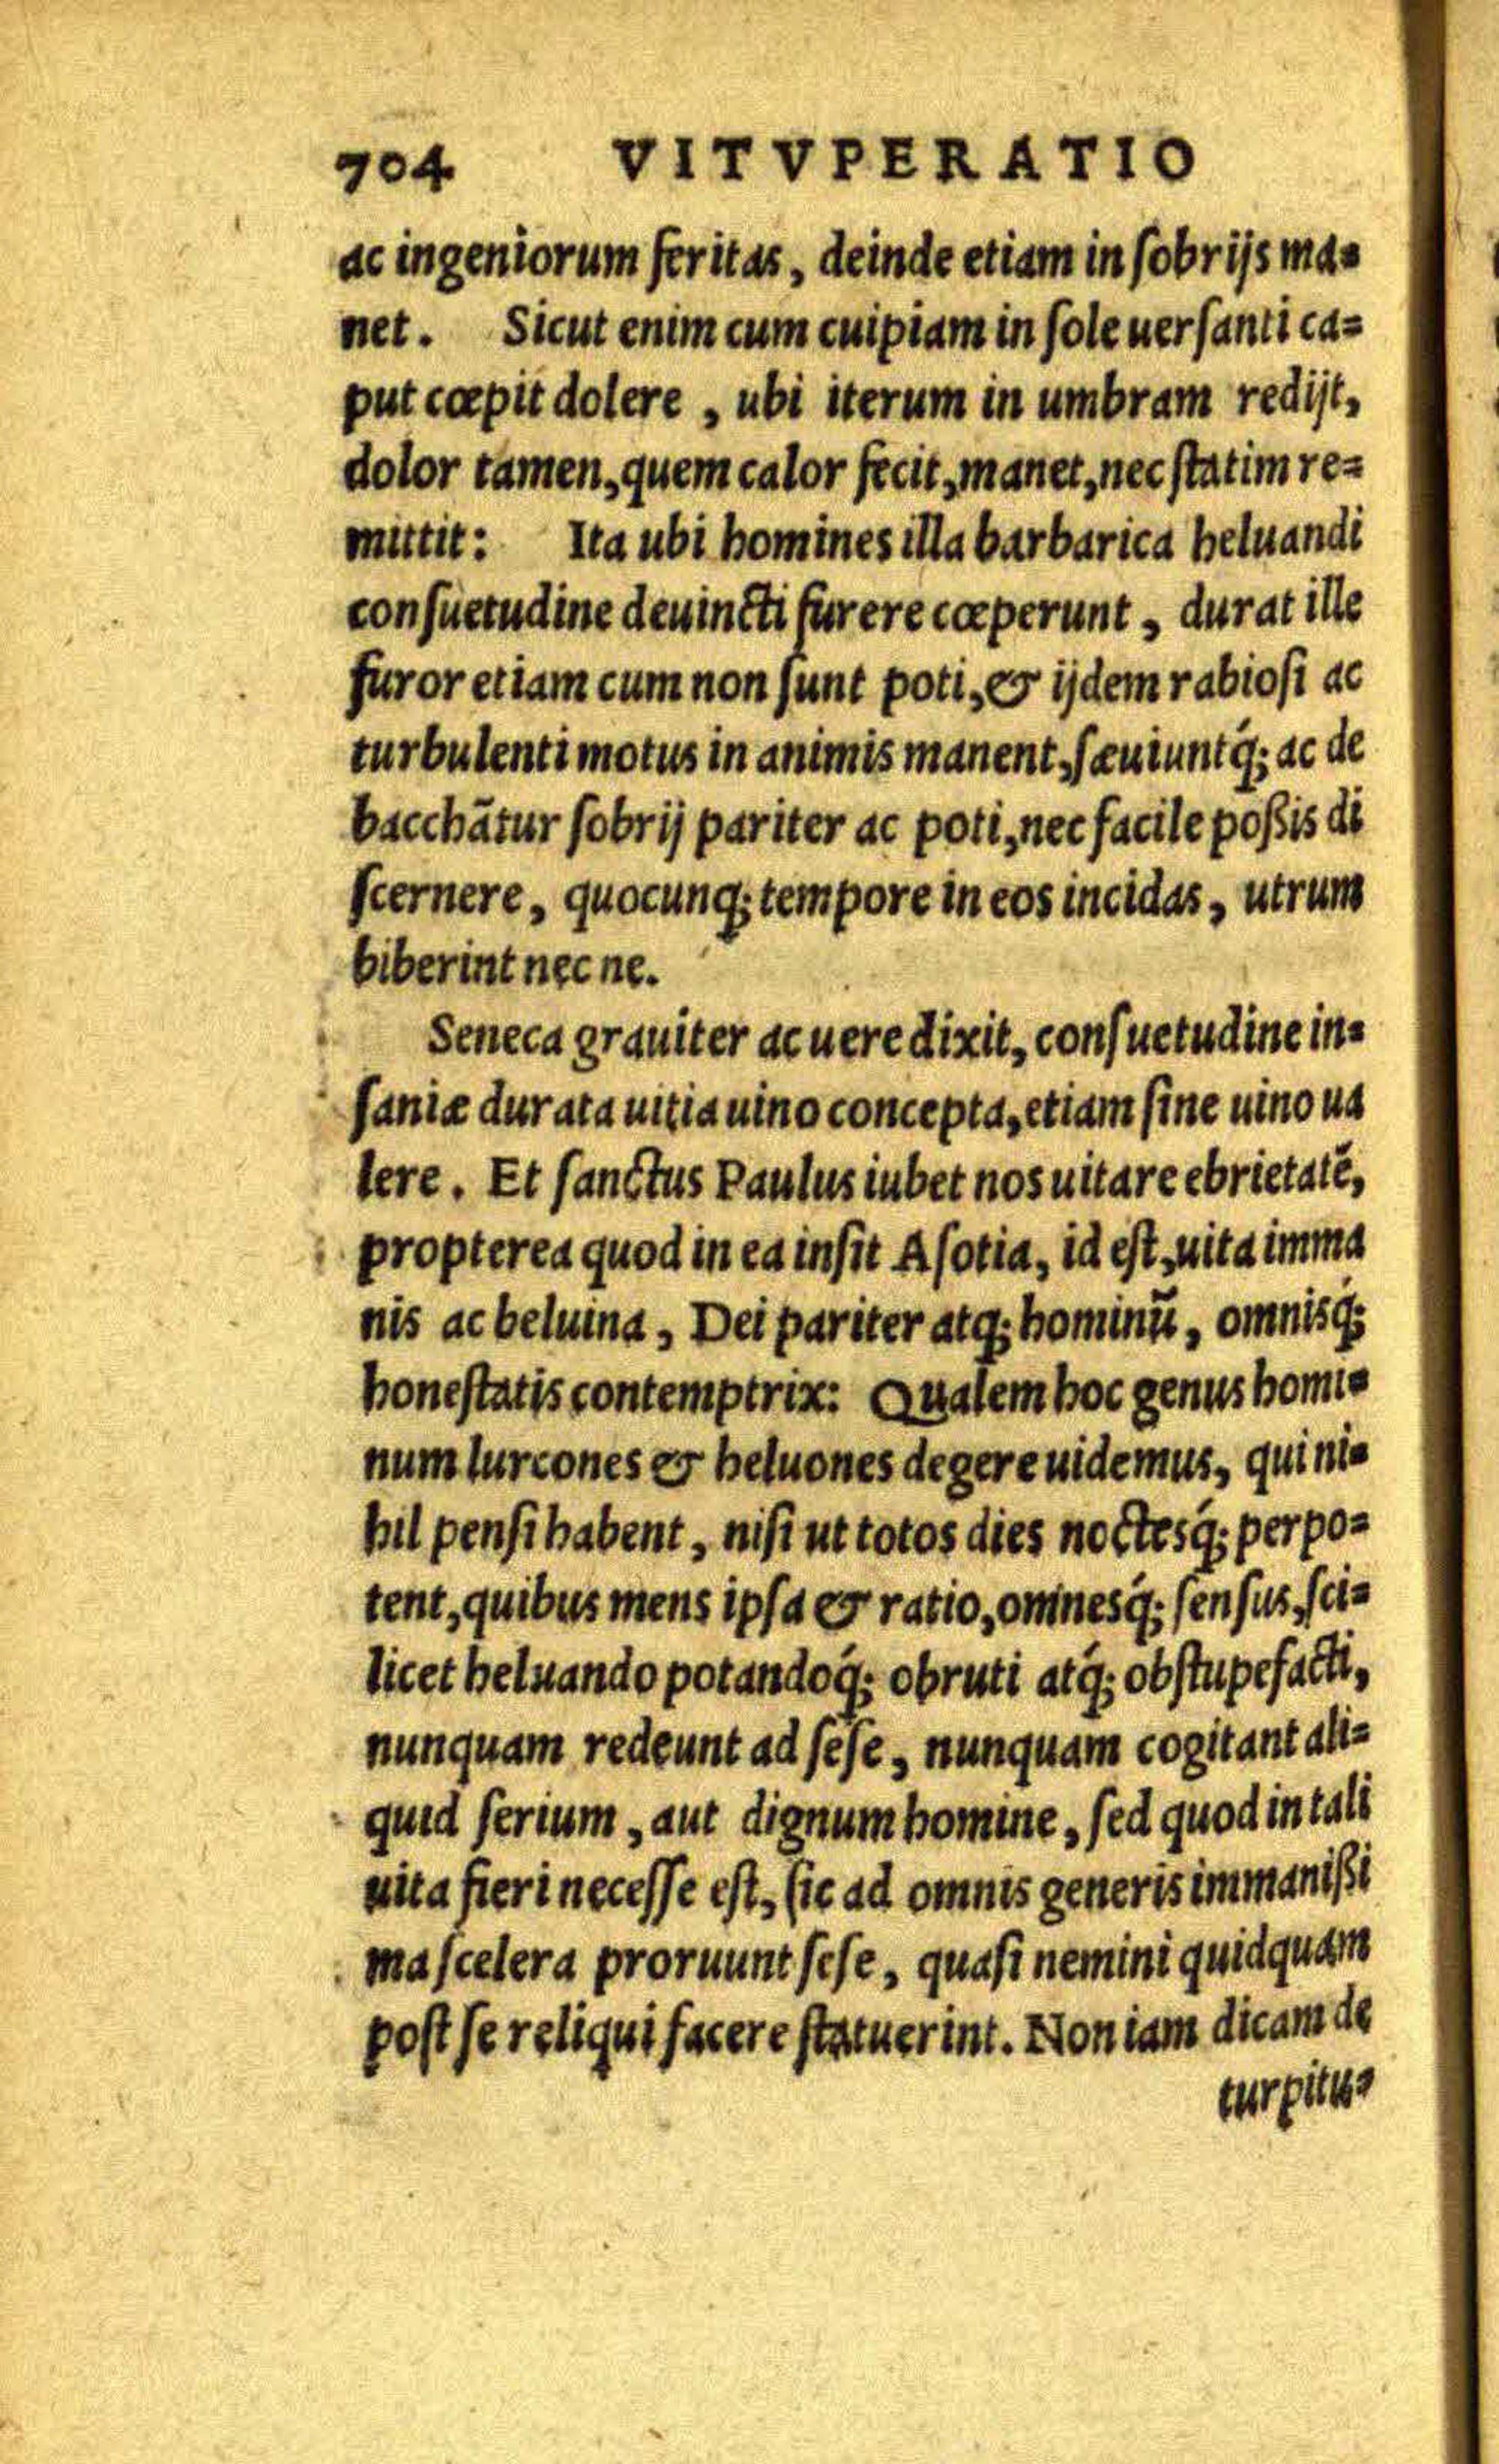 704 VITVPERATIO
ac ingeniorum feritas, deinde etiam in ſobrijs ma=
net. Sicut enim cum cuipiam in ſole uerſanti ca=
put cœpit dolere, ubi iterum in umbram redijt,
dolor tamen, quem calor fecit, manet, nec ſtatim re=
mittit: Ita ubi homines illa barbarica heluandi
conſuetudine deuincti furere cœperunt, durat ille
furor etiam cum non ſunt poti, & ijdem rabioſi ac
turbulenti motus in animis manent, ſæuiuntq́; ac de
bacchãtur ſobrij pariter ac poti, nec facile poßis di
ſcernere, quocunq; tempore in eos incidas, utrum
biberint nec ne.
Seneca grauiter ac uere dixit, conſuetudine in=
ſaniæ durata uitia uino concepta, etiam ſine uino ua
lere. Et ſanctus Paulus iubet nos uitare ebrietatẽ,
propterea quod in ea inſit Aſotia, id eſt, uita imma
nis ac beluina, Dei pariter atq; hominũ, omnisq́;
honeſtatis contemptrix: Qualem hoc genus homi=
num lurcones & heluones degere uidemus, qui ni=
hil penſi habent, niſi ut totos dies noctesq́; perpo=
tent, quibus mens ipſa & ratio, omnesq́; ſenſus, ſci=
licet heluando potandoq́; obruti atq́; obſtupefacti,
nunquam redeunt ad ſeſe, nunquam cogitant ali=
quid ſerium, aut dignum homine, ſed quod in tali
uita fieri neceſſe eſt, ſic ad omnis generis immanißi
ma ſcelera proruunt ſeſe, quaſi nemini quidquam
poſt ſe reliqui facere ſtatuerint. Non iam dicam de
turpitu=